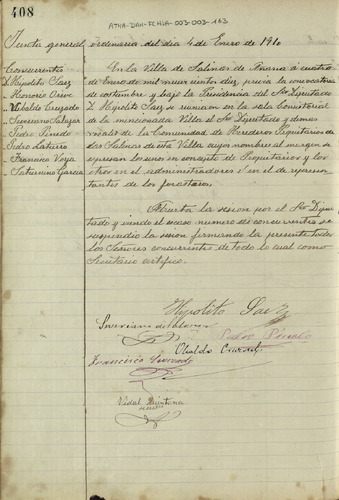 408
ATHA-DAH-FCHVA-003-003-163
Junta general ordinaria del dia 4 de Enero de 1910
Concurrentes
D. Hipolito Saez
" Honorio Orive
" Ubaldo Cruzado
" Severiano Salazar
" Pedro Pinedo
" Isidro Latorre
" Francisco
" Saturnino Garcia
En la Villa de Salinas de Añana a cuatro
de Enero de mil novecientos diez, previa la convocatoria
de costumbre y bajo la Presidencia del Sor Diputado
D. Hipolito Saez se reunieron en la sala Consistorial
de la mencionada Villa el Sor Diputado y demas
vocales de la Comunidad de Herederos Propietarios de
las Salinas de esta Villa cuyos nombres al margen se
espresan los unos en concepto de Propietarios y los
otros en el de administradores y en el de represen
tantes de los forasteros.
Abierta la sesion por el Sor Dipu
tado y viendo el escaso numero de concurrentes se
suspendio la sesion firmando la presente todos
los Señores concurrentes de todo lo cual como
Secretario certifico.
Hipolito Saez
Severiano Salazar
Pedro Pinedo
Ubaldo Cruzado
Francisco
Vidal Quintana